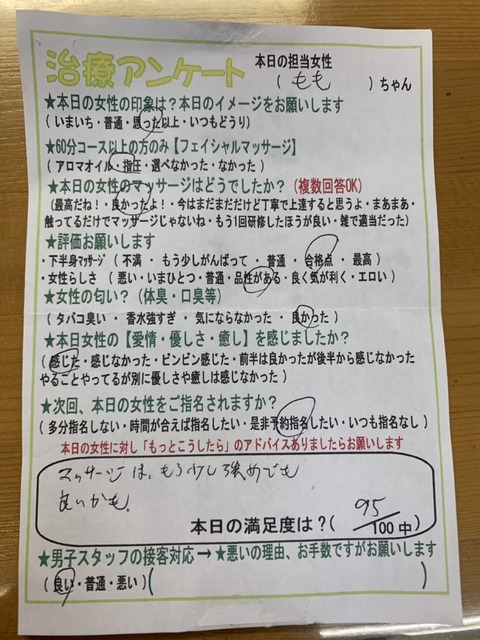 治療アンケート
本日の担当女性
( もも )ちゃん
★本日の女性の印象は？本日のイメージをお願いします
( いまいち・普通・思った以上・いつもどうり )
★60分コース以上の方のみ【フェイシャルマッサージ】
( アロマオイル・指圧・選べなかった・なかった )
★本日の女性のマッサージはどうでしたか？(複数回答OK)
(最高だね！・良かったよ！・今はまだまだだけど丁寧で上達すると思うよ・まあまあ・
触ってるだけでマッサージじゃないね・もう1回研修したほうが良い・雑で適当だった)
★評価お願いします
・下半身マッサージ ( 不満 ・ もう少しがんばって ・ 普通 ・ 合格点 ・ 最高 )
・女性らしさ ( 悪い・いまひとつ・普通・品性がある・良く気が利く・エロい )
★女性の匂い？(体臭・口臭等)
( タバコ臭い ・ 香水強すぎ ・ 気にならなかった ・ 良かった )
★本日女性の【愛情・優しさ・癒し】を感じましたか？
(感じた・感じなかった・ビンビン感じた・前半は良かったが後半から感じなかった
やることやってるが別に優しさや癒しは感じなかった )
★次回、本日の女性をご指名されますか？
( 多分指名しない・時間が合えば指名したい・是非予約指名したい・いつも指名なし )
本日の女性に対し「もっとこうしたら」のアドバイスありましたらお願いします
マッサージは、もう少し強めでも
良いかも.
本日の満足度は？( 95/100中 )
★男子スタッフの接客対応→★悪いの理由、お手数ですがお願いします
( 良い・普通・悪い ) ( )